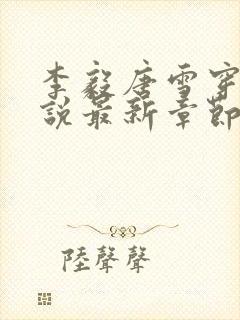 李毅唐雪穿
説最新章節
陸聲聲